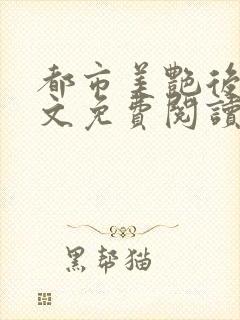 都市美艷後
文免費閱讀
黑幫猫